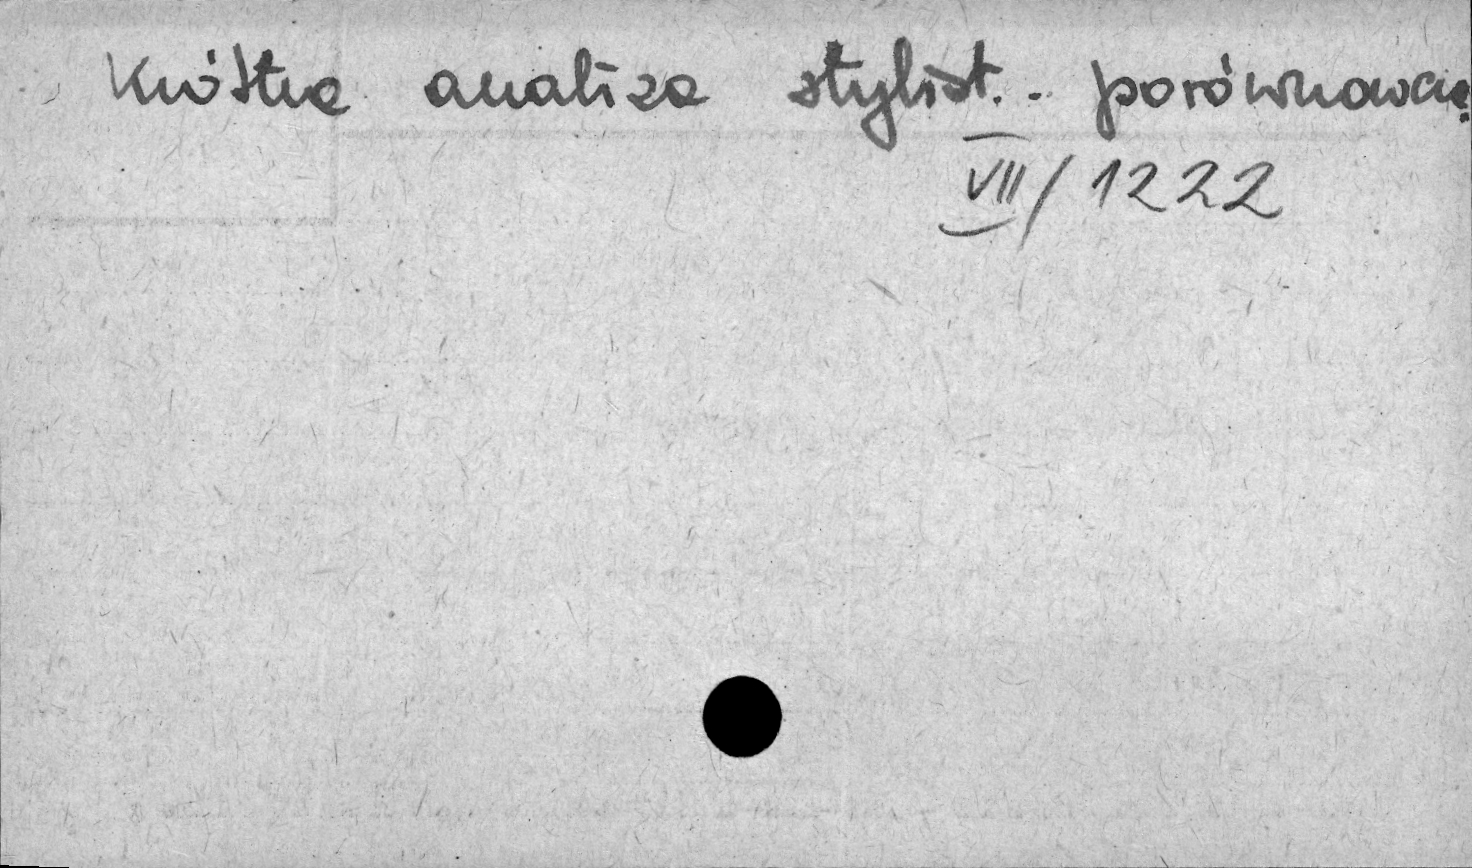 Krótka analiza stylist. - porównawcza
VII/1222